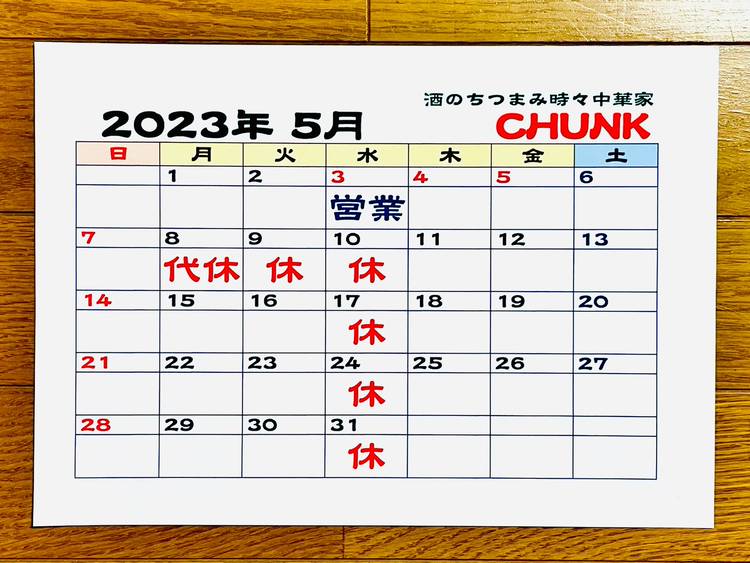 酒のちつまみ時々中華家
2023年 5月 CHUNK
日 月 火 水 木 金 土
1 2 3 4 5 6
営業
7 8 9 10 11 12 13
代休 休 休
14 15 16 17 18 19 20
休
21 22 23 24 25 26 27
休
28 29 30 31
休